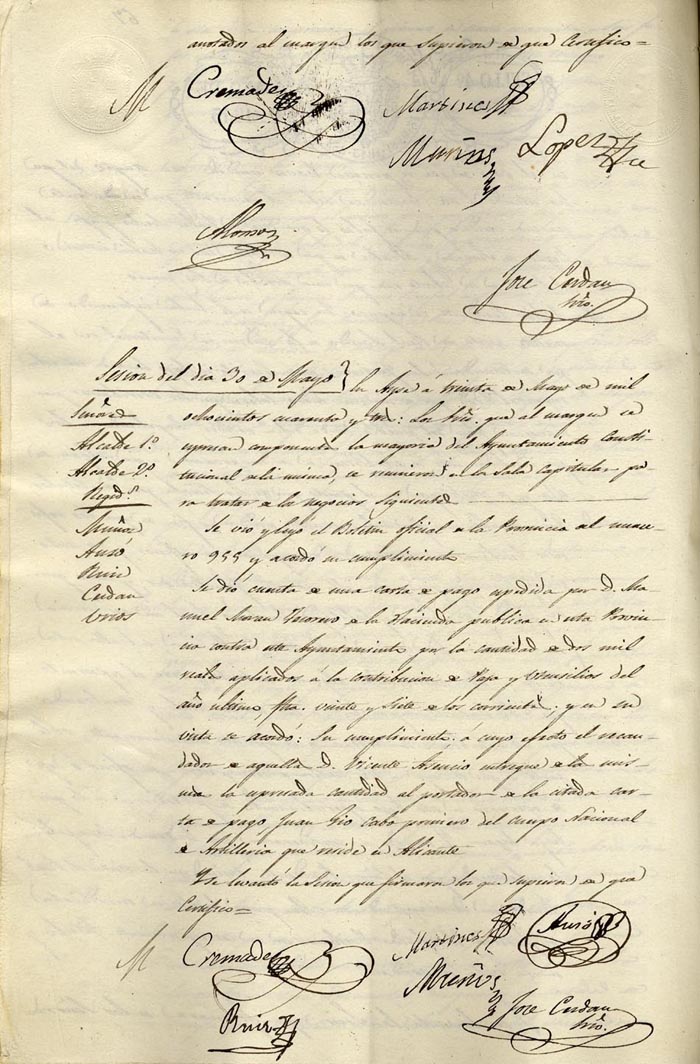 anotados al margen los que supieron de que Certifico=
M
Cremades
Martinez
Muñoz
Lopez
Alonso
Jose Cerdan
Srio.
Sesion del dia 30 de Mayo}
En Aspe á treinta de Mayo de mil
ochocientos cuarenta y tres: Los Sres. que al margen se
espresan componentes la mayoria del Ayuntamiento Consti-
tucional de la misma, se reunieron en la Sala capitular pa-
ra tratar de los negocios siguientes
Señores
Alcalde 1º.
Alcalde 2º.
Regids.
Muñoz
Ausó
Ruiz
Cerdan
Srios
Se vió y leyó el Boletin oficial de la Provincia del nume-
ro 955 y acordó su cumplimiento
Se dió cuenta de una carta de pago espedida por D. Ma-
nuel Tesorero de la Hacienda publica de esta Provin-
cia contra este Ayuntamiento por la cantidad de dos mil
reales aplicados á la contribucion de Paja y Utensilios del
año ultimo fha. veinte y siete de los corrientes; y en su
vista se acordó: Su cumplimiento, á cuyo efecto el recau-
dador de aquella D. Vicente Asencio entregue de la mis-
ma la espresada cantidad al portador de la citada car-
ta de pago Juan Gio Cabo primero del cuerpo Nacional
de Artilleria que reside en Alicante
Y se levantó la Sesion que firmaron los que supieron de que
Certifico=
M
Cremades
Martinez
Ausó
Muñoz
Ruiz
Jose Cerdan
Srio.